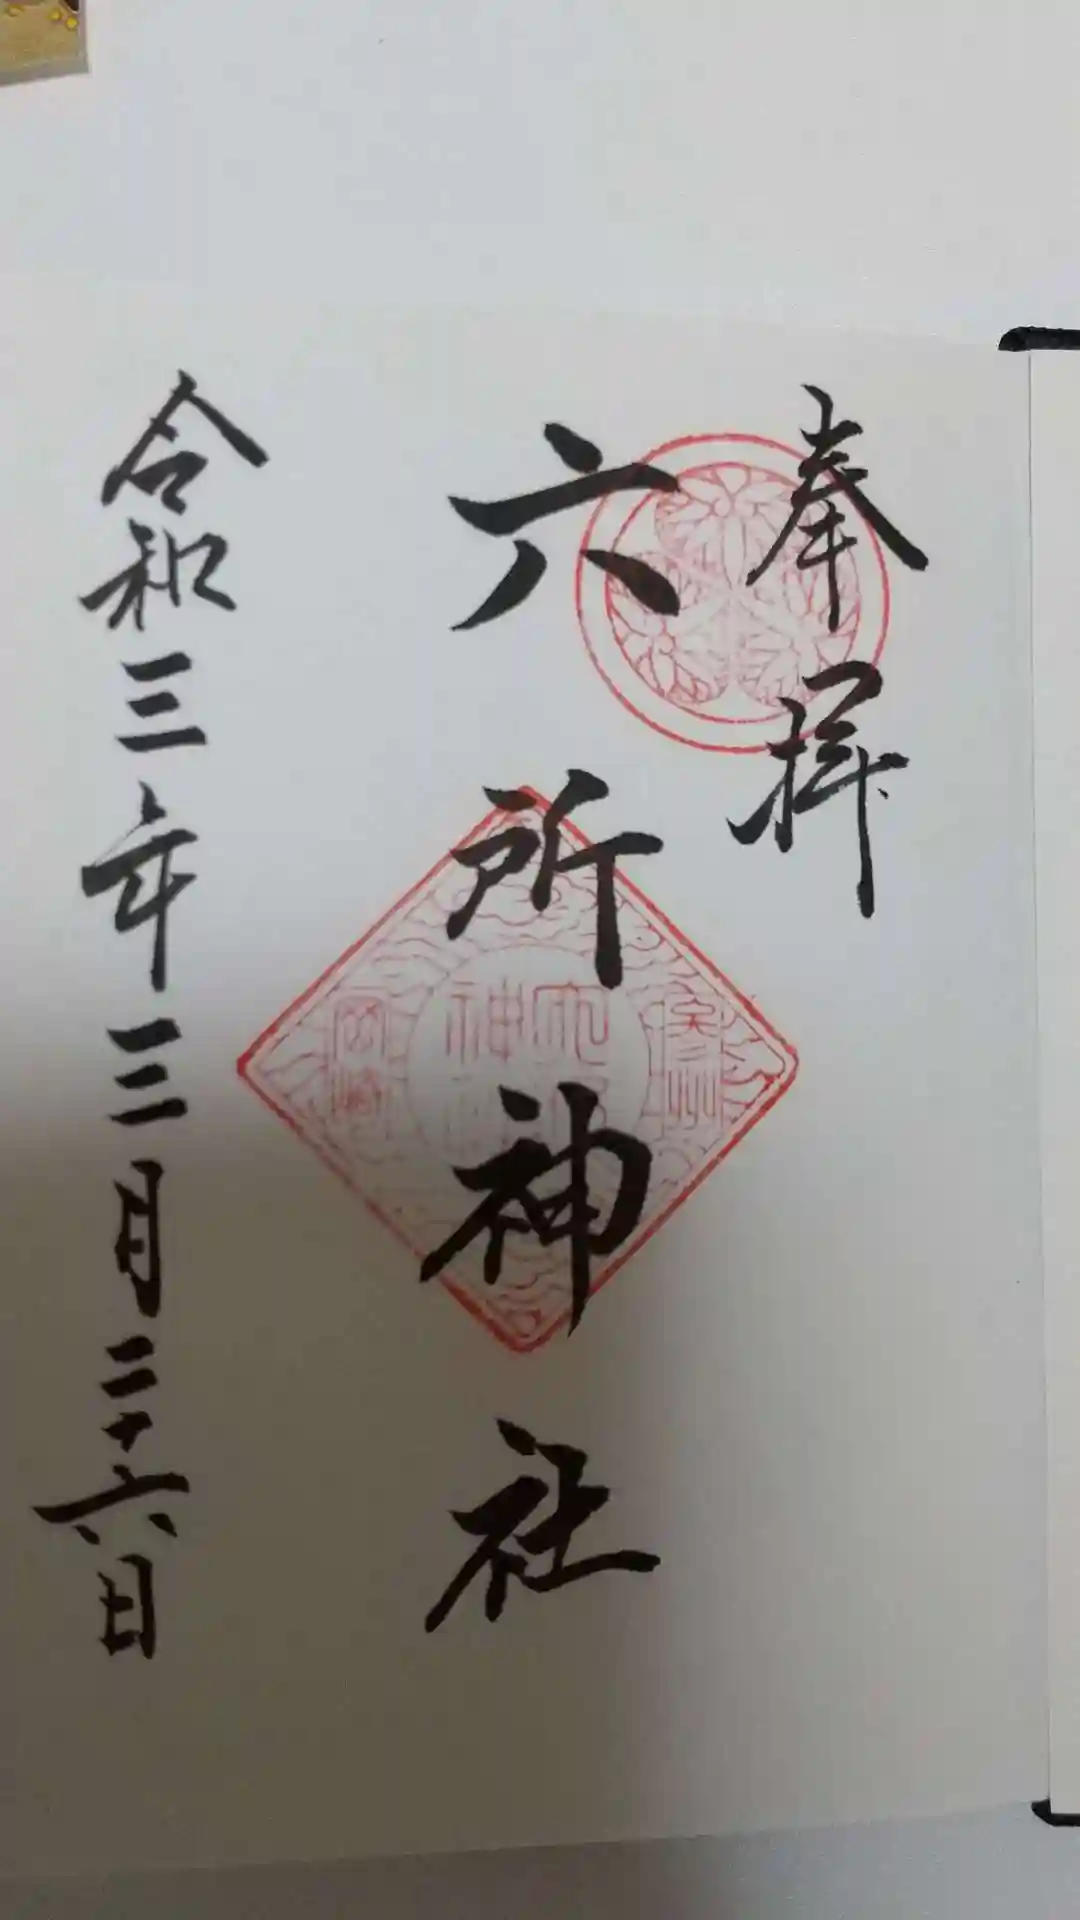 奉拝
六所神社
令和三年三月二十六日